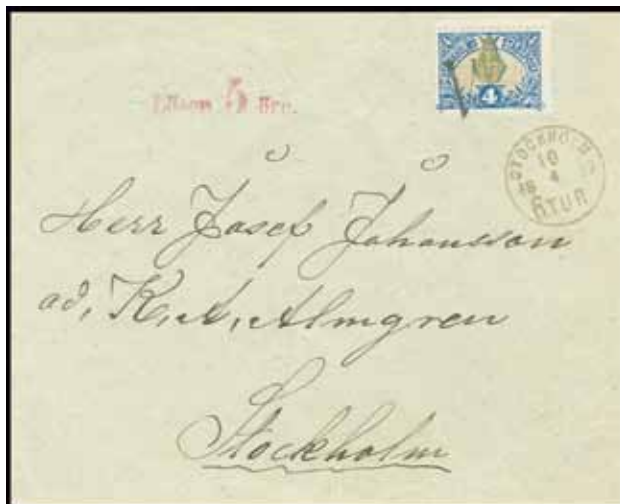 Lösen 5 öre.
4
STOCKHOLM
10
4
RTUR
Herr Josef Johansson
ad. K. A. Almgren
Stockholm